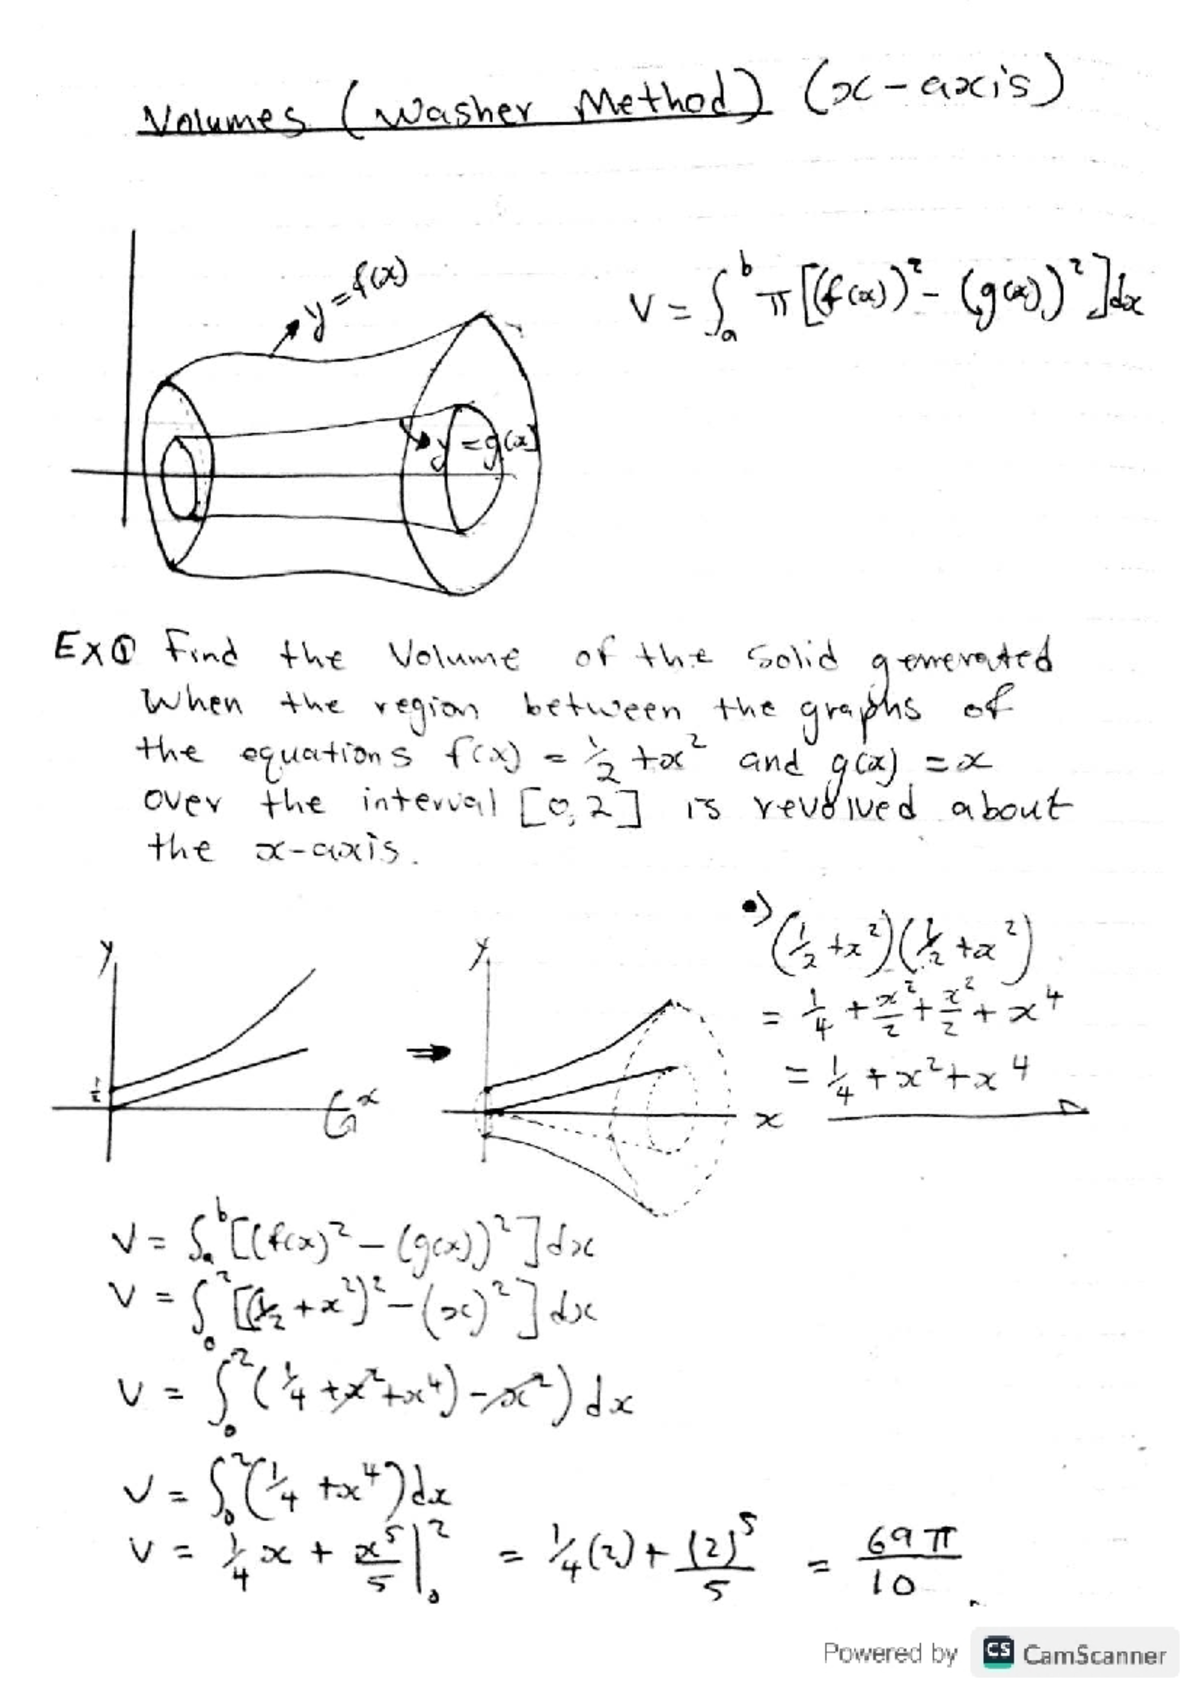 Volumes (Washer Method) (x-axis)
y = f(x)
V = ∫ₐᵇ π[(f(x))² - (g(x))²]dx
y = g(x)
Ex① Find the Volume of the Solid generated
When the region between the graphs of
the equations f(x) = 1/2 + x² and g(x) = x
over the interval [0, 2] is revolved about
the x-axis.
•) (1/2 + x²)(1/2 + x²)
= 1/4 + x²/2 + x²/2 + x⁴
= 1/4 + x² + x⁴
y
1/2
x
⇒
y
x
V = ∫ₐᵇ [(f(x)² - (g(x))²]dx
V = ∫₀² [(1/2 + x²)² - (x)²]dx
V = ∫₀² (1/4 + x² + x⁴) - x²) dx
V = ∫₀² (1/4 + x⁴)dx
V = 1/4 x + x⁵/5 |₀² = 1/4(2) + (2)⁵/5 = 69π/10
Powered by CS CamScanner